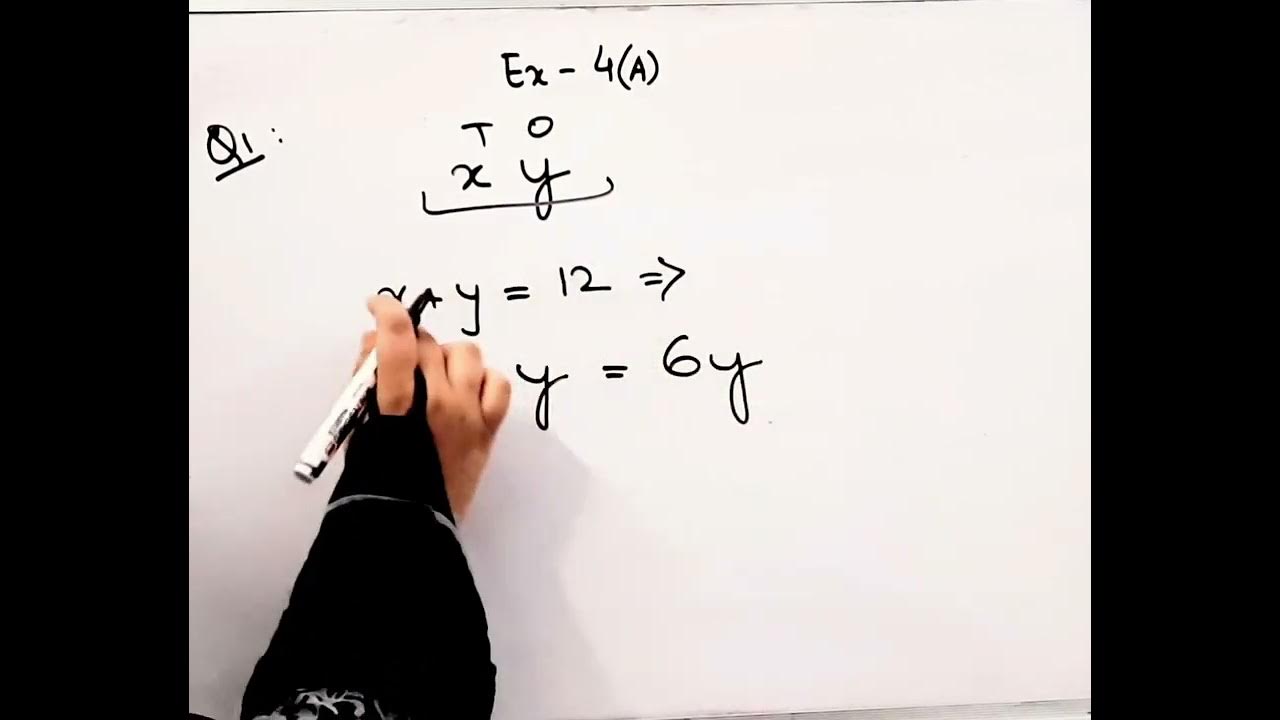 Ex - 4(A)
Q1:
T O
x y
x + y = 12 ⇒
y = 6y